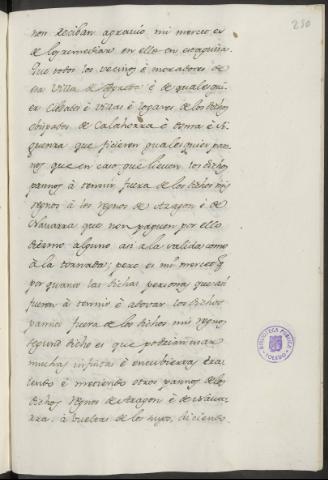 250
non reciban agravio mi merced es
de lo remediar en ello en esta guisa
Que todos los vecinos è moradores de
esa Villa de Agreda è de qualesqui-
er Cibdades è Villas è logares de los dichos
obispados de Calahorra è Osma è Si-
guenza que ficieren qualesquier pa-
ños que en caso que lieven los dichos
paños à tennir fuera de los dichos mis
regnos à los regnos de Aragon è de
Navarra que non paguen por ello
diezmo alguno asi à la salida como
à la tornada; pero es mi merced q
por quanto las dichas personas que asi
fueren à tennir è adobar los dichos
paños fuera de los dichos mis regnos
segund dicho es que podrian usar
muchas infintas è encubiertas tra-
iendo è metiendo otros paños de los
dichos regnos de Aragon è de Nava-
rra, à bueltas de los suyos, diciendo
BIBLIOTECA PUBLICA
TOLEDO